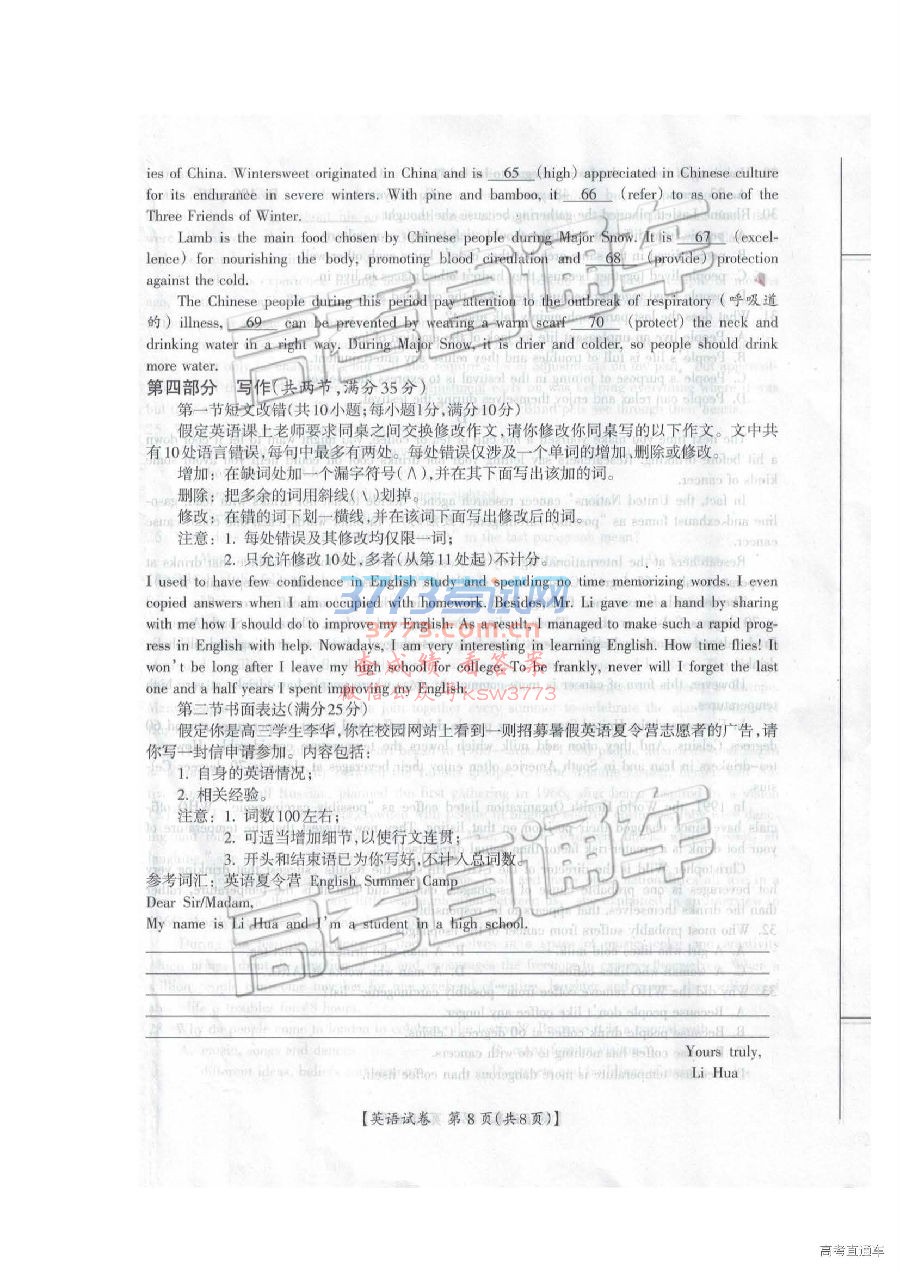 ies of China. Wintersweet originated in China and is 65 (high) appreciated in Chinese culture
for its endurance in severe winters. With pine and bamboo, it 66 (refer) to as one of the
Three Friends of Winter.
Lamb is the main food chosen by Chinese people during Major Snow. It is 67 (excel-
lence) for nourishing the body, promoting blood circulation and 68 (provide) protection
against the cold.
The Chinese people during this period pay attention to the outbreak of respiratory (呼吸道
的) illness, 69 can be prevented by wearing a warm scarf 70 (protect) the neck and
drinking water in a right way. During Major Snow, it is drier and colder, so people should drink
more water.
第四部分 写作(共两节,满分35分)
第一节短文改错(共10小题;每小题1分,满分10分)
假定英语课上老师要求同桌之间交换修改作文,请你修改你同桌写的以下作文。文中共
有10处语言错误,每句中最多有两处。每处错误仅涉及一个单词的增加,删除或修改。
增加: 在缺词处加一个漏字符号(∧),并在其下面写出该加的词。
删除: 把多余的词用斜线(\)划掉。
修改: 在错的词下划一横线,并在该词下面写出修改后的词。
注意: 1. 每处错误及其修改均仅限一词;
2. 只允许修改10处,多者(从第11处起)不计分。
I used to have few confidence in English study and spending no time memorizing words. I even
copied answers when I am occupied with homework. Besides, Mr. Li gave me a hand by sharing
with me how I should do to improve my English. As a result, I managed to make such a rapid prog-
ress in English with help. Nowadays, I am very interesting in learning English. How time flies! It
won't be long after I leave my high school for college. To be frankly, never will I forget the last
one and a half years I spent improving my English.
3773考试网
3773.com.cn
查成绩 看答案
微信公众号ksw3773
第二节书面表达(满分25分)
假定你是高三学生李华,你在校园网站上看到一则招募暑假英语夏令营志愿者的广告,请
你写一封信申请参加。内容包括:
1. 自身的英语情况;
2. 相关经验。
注意: 1. 词数100左右;
2. 可适当增加细节,以使行文连贯;
3. 开头和结束语已为你写好,不计入总词数。
参考词汇: 英语夏令营 English Summer Camp
Dear Sir/Madam,
My name is Li Hua and I'm a student in a high school.
Yours truly,
Li Hua
【英语试卷 第8页(共8页)】
高考直通车
高考直通车
高考直通车